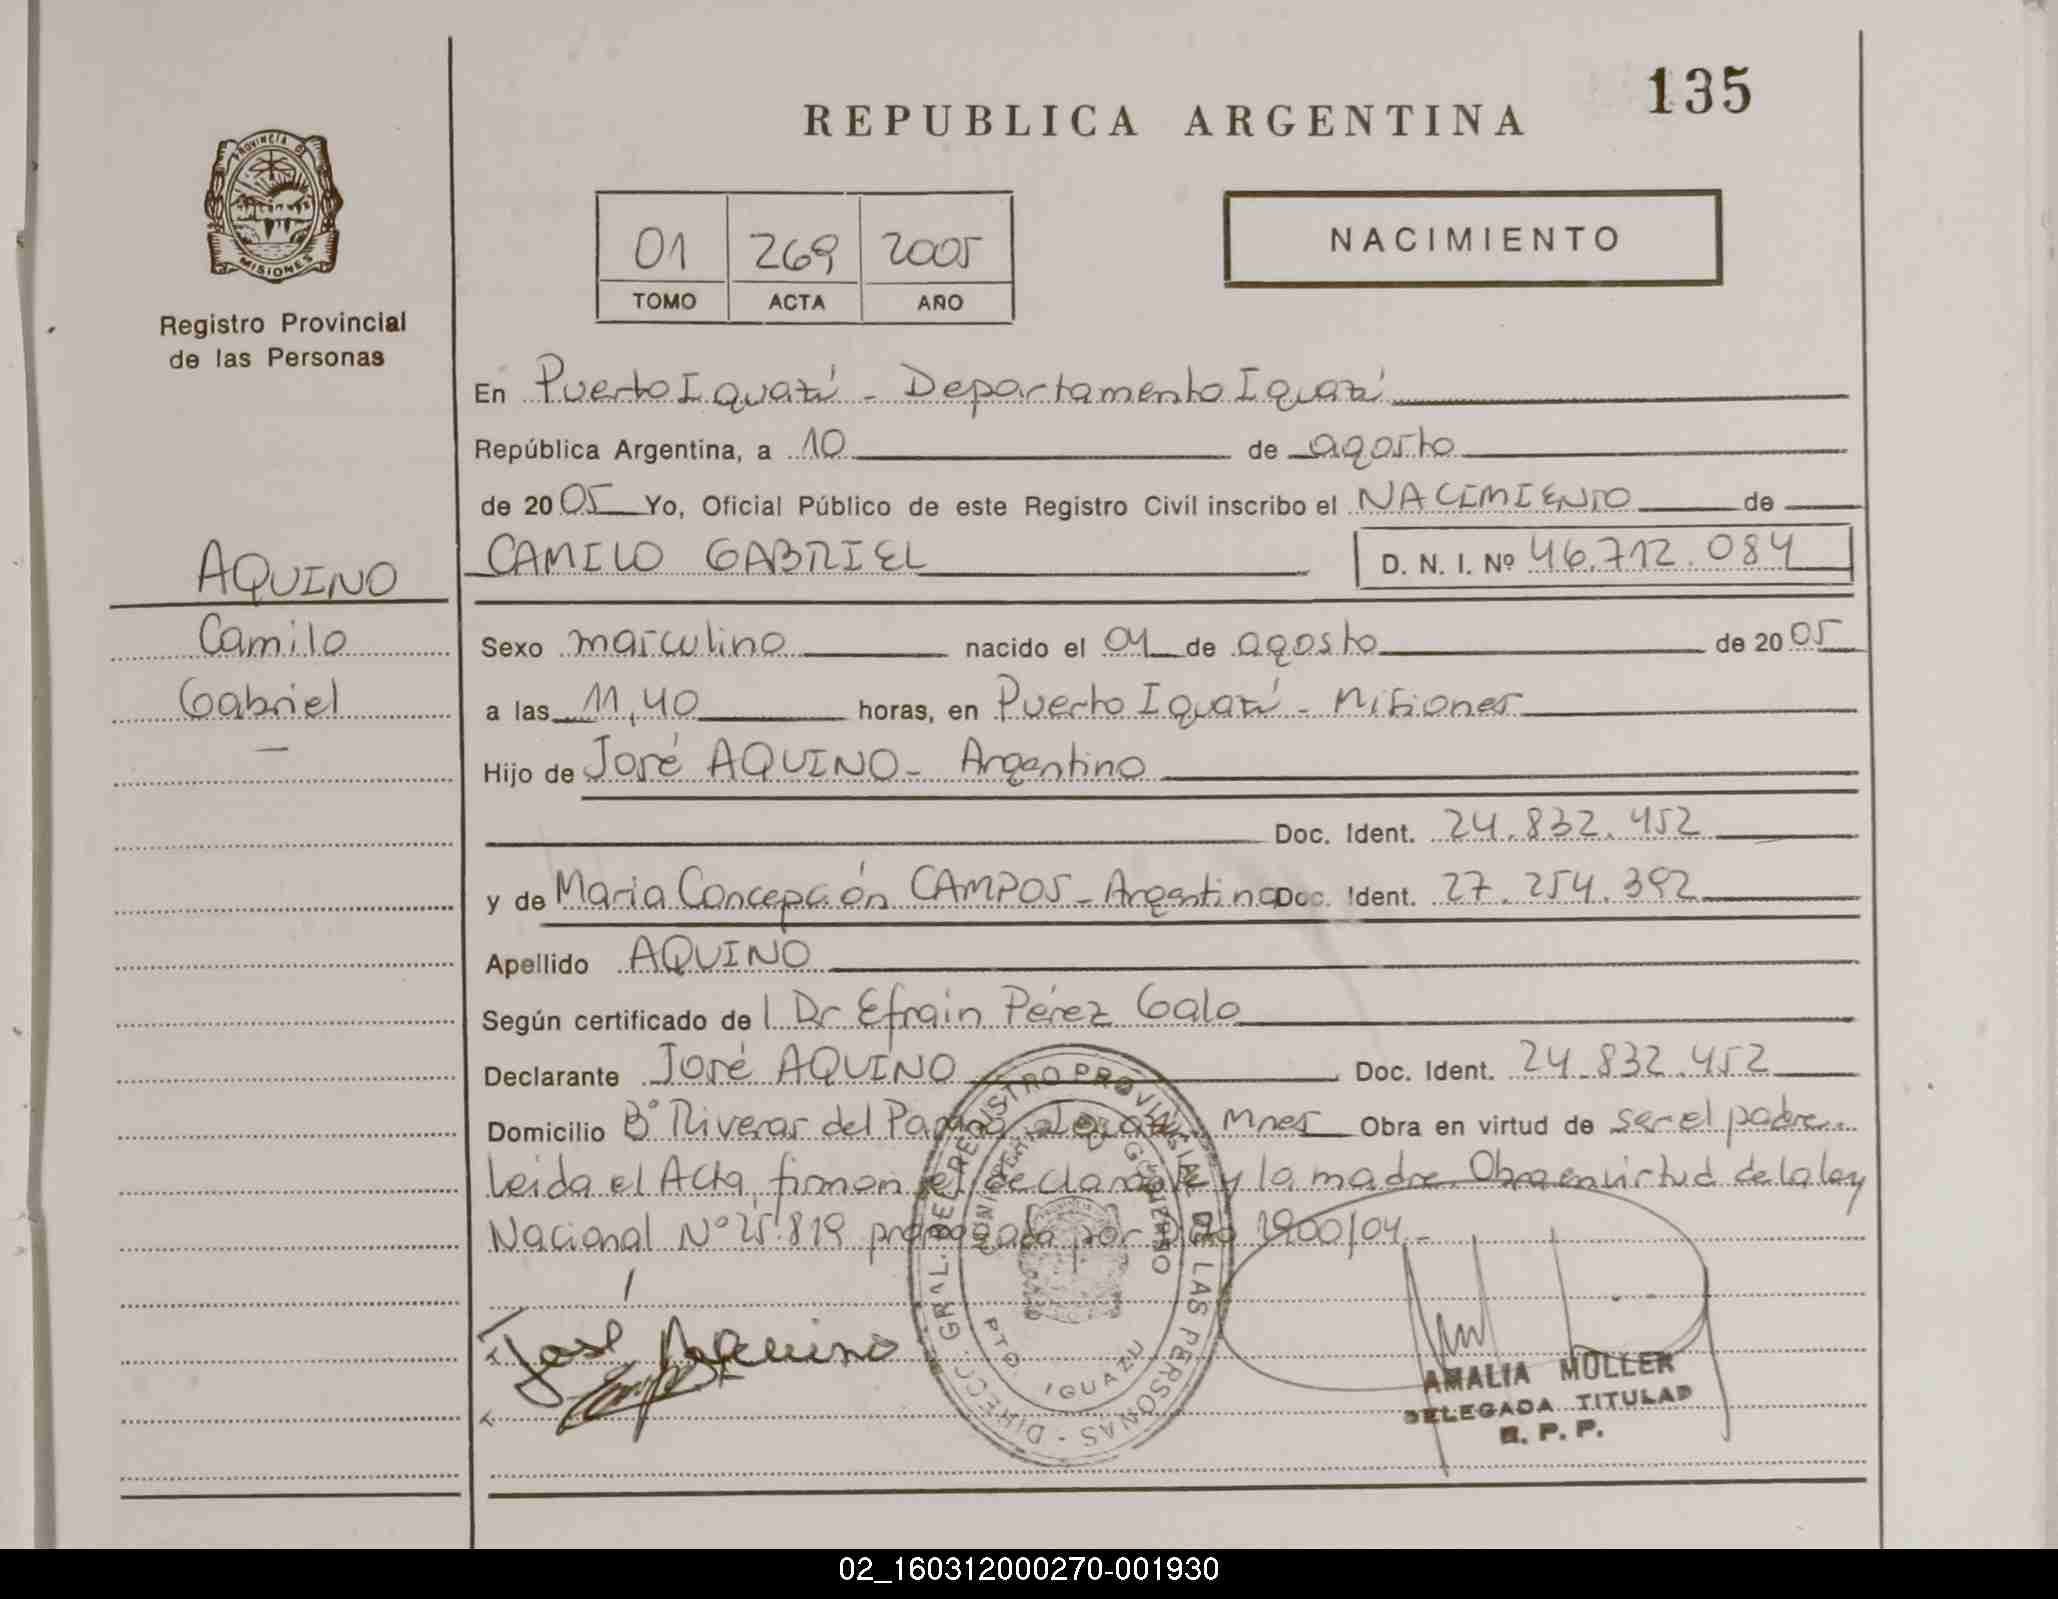 135
REPUBLICA ARGENTINA
PROVINCIA DE
MISIONES
Registro Provincial
de las Personas
01 269 2005
TOMO ACTA AÑO
NACIMIENTO
En Puerto Iguazú - Departamento Iguazú
República Argentina, a 10 de agosto
de 2005 Yo, Oficial Público de este Registro Civil inscribo el NACIMIENTO de
CAMILO GABRIEL D. N. I. Nº 46.712.084
AQUINO
Camilo
Gabriel
Sexo masculino nacido el 04 de agosto de 2005
a las 11,40 horas, en Puerto Iguazú - Misiones
Hijo de José AQUINO - Argentino
Doc. Ident. 24.832.452
y de Maria Concepción CAMPOS - Argentina Doc. Ident. 27.254.392
Apellido AQUINO
Según certificado de l Dr Efraín Pérez Galo
Declarante José AQUINO Doc. Ident. 24.832.452
Domicilio Bº Riveras del Paraná Iguazú Mnes Obra en virtud de ser el padre.
Leída el Acta, firman el declarante y la madre. Obra en virtud de la ley
Nacional Nº 25.819 prorrogada por Dto 1900/04 -
José Aquino
DIRECC. GRAL. DEL REGISTRO PROVINCIAL DE LAS PERSONAS -
GOBIERNO
PTO. IGUAZU
AMALIA MÜLLER
DELEGADA TITULAR
R. P. P.
02_160312000270-001930